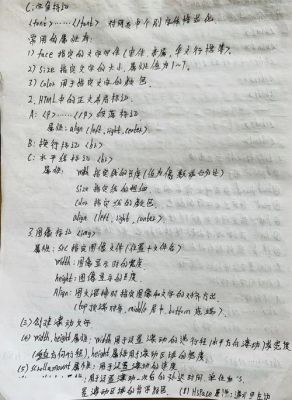 C: 字体标记
<font>……</font> 对网页中个别字体标出
常用的属性有:
1) face 指定的文字字体 (宋体, 隶属,
2) size 指定文字的大小, 属性值为1~7.
3) color 用于指定文字的颜色.
2. Html中的正文布局标记.
A: <p>……</p> 段落标记.
属性: align (left, right, center)
B: 换行标记 <br>
C: 水平线标记 <hr>
属性: width 指定线的长度 (值为像素数或百分比)
size 指定线的粗细.
color 指定线的颜色.
align (left, right, center)
3. 图像标记 <img>
属性: src 指定图像文件 (位置+文件名)
width: 图像显示时的宽度.
height: 图像显示的高度.
Align: 图文混排时指定图像和文字的对齐方式
(top 顶端对齐, middle 居中, bottom 底端)
(三) 创建滚动文字
(4) width, height 属性: width 用于设置滚动的进行程 (水平方向滚动) 或宽度
height 属性用于滚动区域的高度.
(5) scrollamount 属性: 用于设置滚动的速度
用于设置滚动 的延迟时间, 单位为
滚动区域的背景颜色. (8) Hspace 属性: